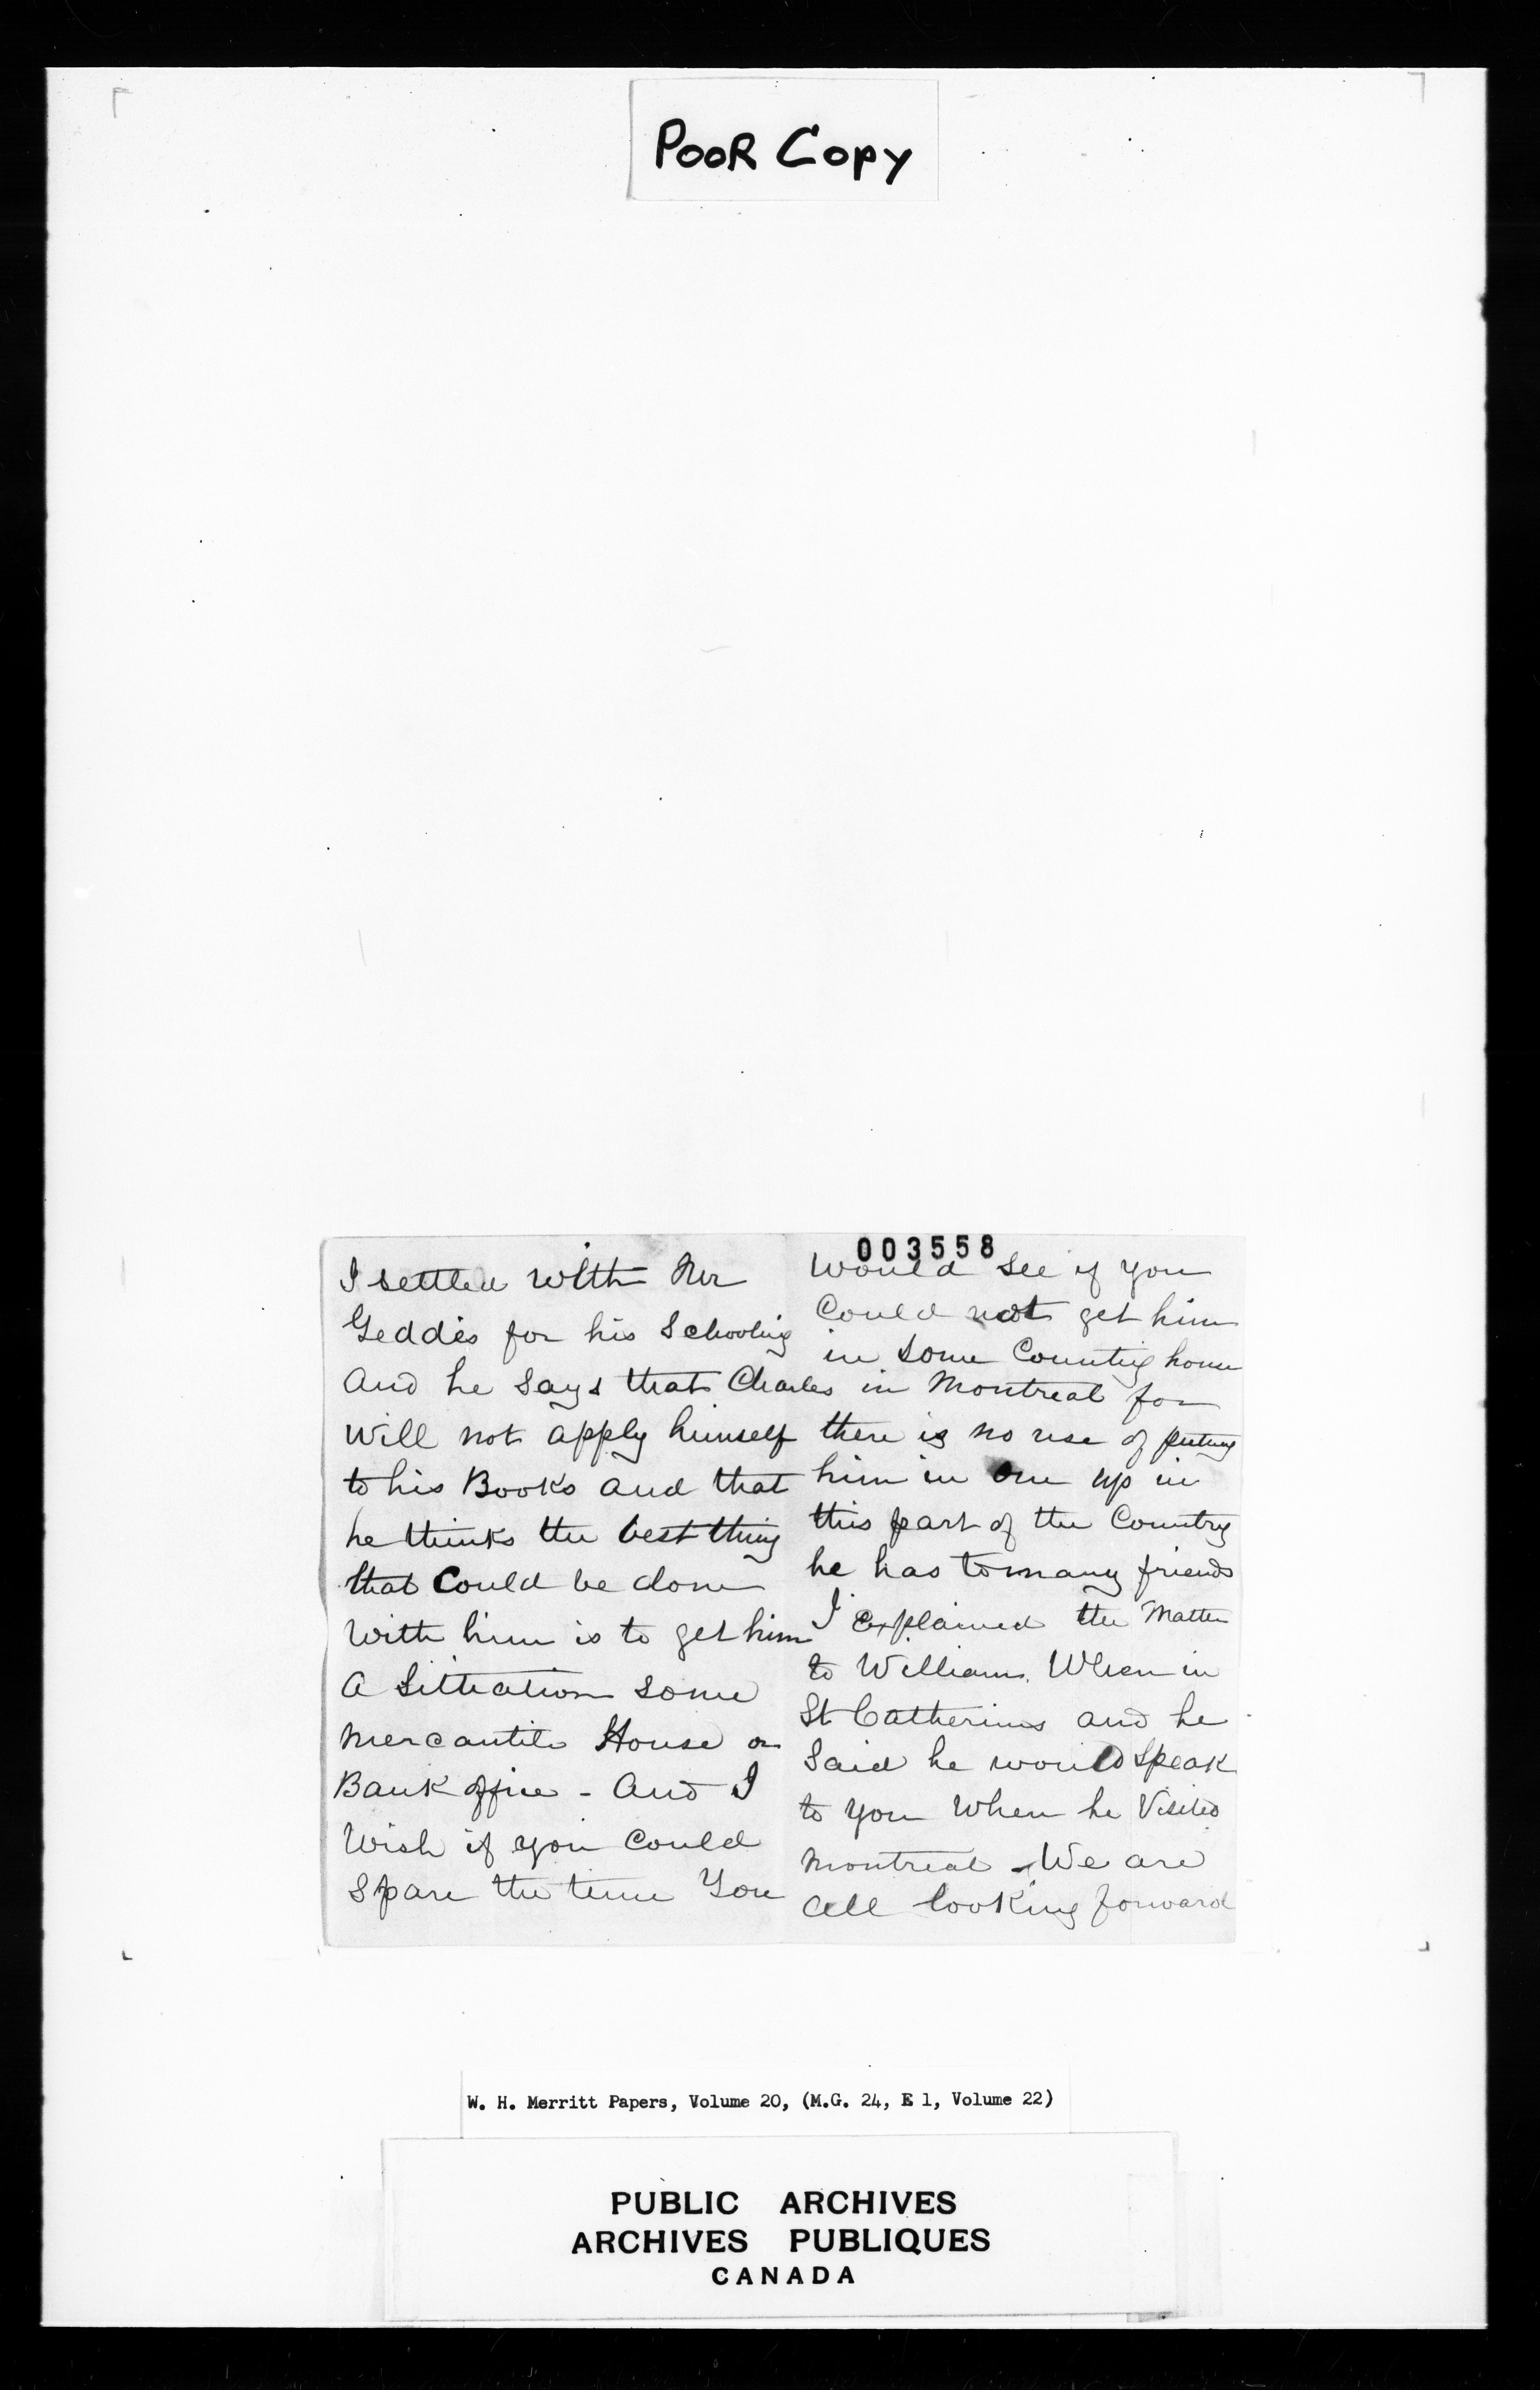 POOR COPY
003558
I settled with Mr
Geddes for his Schooling
And he Says that Charles
Will not apply himself
to his Books and that
he thinks the best thing
that Could be done
With him is to get him
A Sittuation some
Mercantile House or
Bank office - And I
Wish if you Could
Spare the time You
Would See if you
Could not get him
in Some Counting house
in Montreal for
there is no use of puting
him in one up in
this part of the Country
he has tomany friends
I Explained the Matter
to William. When in
St Catherines and he
Said he would Speak
to you When he Visited
Montreal - We are
All looking forward
W. H. Merritt Papers, Volume 20, (M.G. 24, E 1, Volume 22)
PUBLIC ARCHIVES
ARCHIVES PUBLIQUES
CANADA